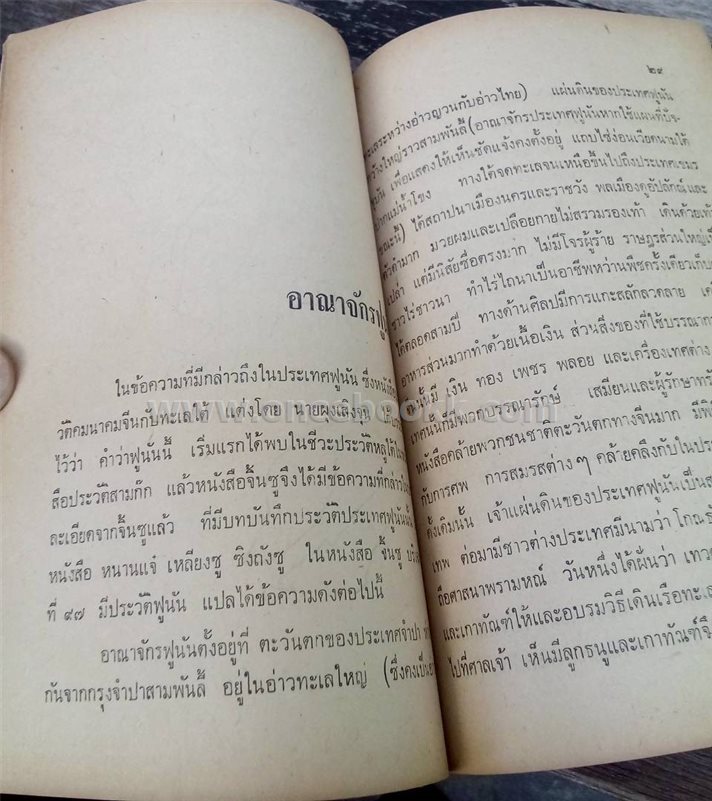 อาณาจักรฟู
ในข้อความที่มีกล่าวถึงในประเทศฟูนัน ซึ่งหนังสือ
วัติคมนาคมจีนกับทะเลใต้ แต่งโดย นายผงเสิงจุน
ไว้ว่า คำว่าฟูนันนี้ เริ่มแรกได้พบในชีวะประวัติหลูไต้
สือประวัติสามก๊ก แล้วหนังสือจิ้นซูจึงได้มีข้อความที่กล่าว
ละเอียดจากจิ้นซูแล้ว ที่มีบทบันทึกประวัติประเทศฟูนันนั้น
หนังสือ หนานแจ๋ เหลียงซู ซิงถังซู ในหนังสือ จิ้นซู
ที่ ๙๗ มีประวัติฟูนัน แปลได้ข้อความดังต่อไปนี้
อาณาจักรฟูนันตั้งอยู่ที่ ตะวันตกของประเทศจำปา
กันจากกรุงจำปาสามพันลี้ อยู่ในอ่าวทะเลใหญ่ (ซึ่งคงเป็น
๒๙
ทะเลระหว่างอ่าวญวนกับอ่าวไทย) แผ่นดินของประเทศฟูนัน
กว้างใหญ่ราวสามพันลี้ (อาณาจักรประเทศฟูนันหากใช้แผนที่ปัจ-
จุบัน เพื่อแสดงให้เห็นชัดแจ้งคงตั้งอยู่ แถบไซ่ง่อนเวียดนามใต้
ปากแม่น้ำโขง ทางใต้จดทะเลจนเหนือขึ้นไปถึงประเทศเขมร
ขณะนี้) ได้สถาปนาเมืองนครและราชวัง พลเมืองดูอัปลักณ์และ
ตัวดำมาก มวยผมและเปลือยกายไม่สรวมรองเท้า เดินด้วยเท้า
เปล่า แต่มีนิสัยซื่อตรงมาก ไม่มีโจรผู้ร้าย ราษฎรส่วนใหญ่เป็
ชาวไร่ชาวนา ทำไร่ไถนาเป็นอาชีพหว่านพืชครั้งเดียวเก็บ
ได้ตลอดสามปี ทางด้านศิลปมีการแกะสลักลวดลาย
อาหารส่วนมากทำด้วยเนื้อเงิน ส่วนสิ่งของที่ใช้บรรณาก
นั้นมี เงิน ทอง เพชร พลอย และเครื่องเทศต่าง
เทศนี้ก็มีพวกบรรณารักษ์ เสมียนและผู้รักษาทรั
หนังสือคล้ายพวกชนชาติตะวันตกทางจีนมาก มีพิ
กับการศพ การสมรสต่างๆ คล้ายคลึงกับในประ
ดั้งเดิมนั้น เจ้าแผ่นดินของประเทศฟูนันเป็นส
เทพ ต่อมามีชาวต่างประเทศมีนามว่า โกณธั
ถือศาสนาพรามหณ์ วันหนึ่งได้ฝันว่า เทว
และเกาทัณฑ์ให้และอบรมวิธีเดินเรือทะเ
ไปที่ศาลเจ้า เห็นมีลูกธนูและเกาทัณฑ์จึ
www.onceboook.com